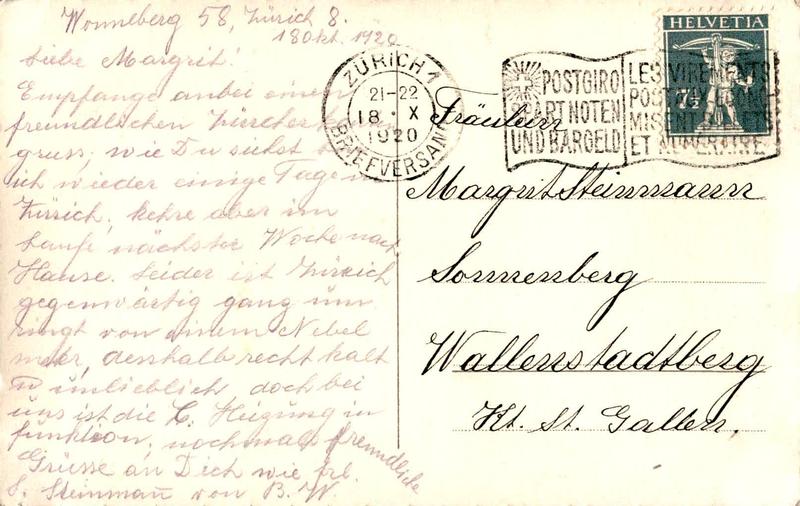 Wonneberg 58, Zürich 8.
18 Okt. 1920
Liebe Margrit!
Empfange anbei einen
freundlichen Zürcher
gruss, wie Du siehst
ich wieder einige Tage
Zürich, kehre aber im
Laufe nächster Woche nach
Hause. Leider ist Zürich
gegenwärtig ganz um
ringt von einem Nebel
meer, desshalb recht kalt
u unlieblich, doch bei
uns ist die C. Heizung in
funktion, nochmals freundliche
Grüsse an Dich wie frl.
S. Steinmañ von B. W.
ZÜRICH 1
21-22
18 · X
1920
BRIEFVERSAND
POSTGIRO
SPART NOTEN
UND BARGELD
LES VIREMENTS
POSTAUX ÉCONO
MISENT BILLETS
ET NUMÉRAIRE
HELVETIA
7½
Fräulein
Margrit Steinmann
Sonnenberg
Wallenstadtberg
Kt. St. Gallen.